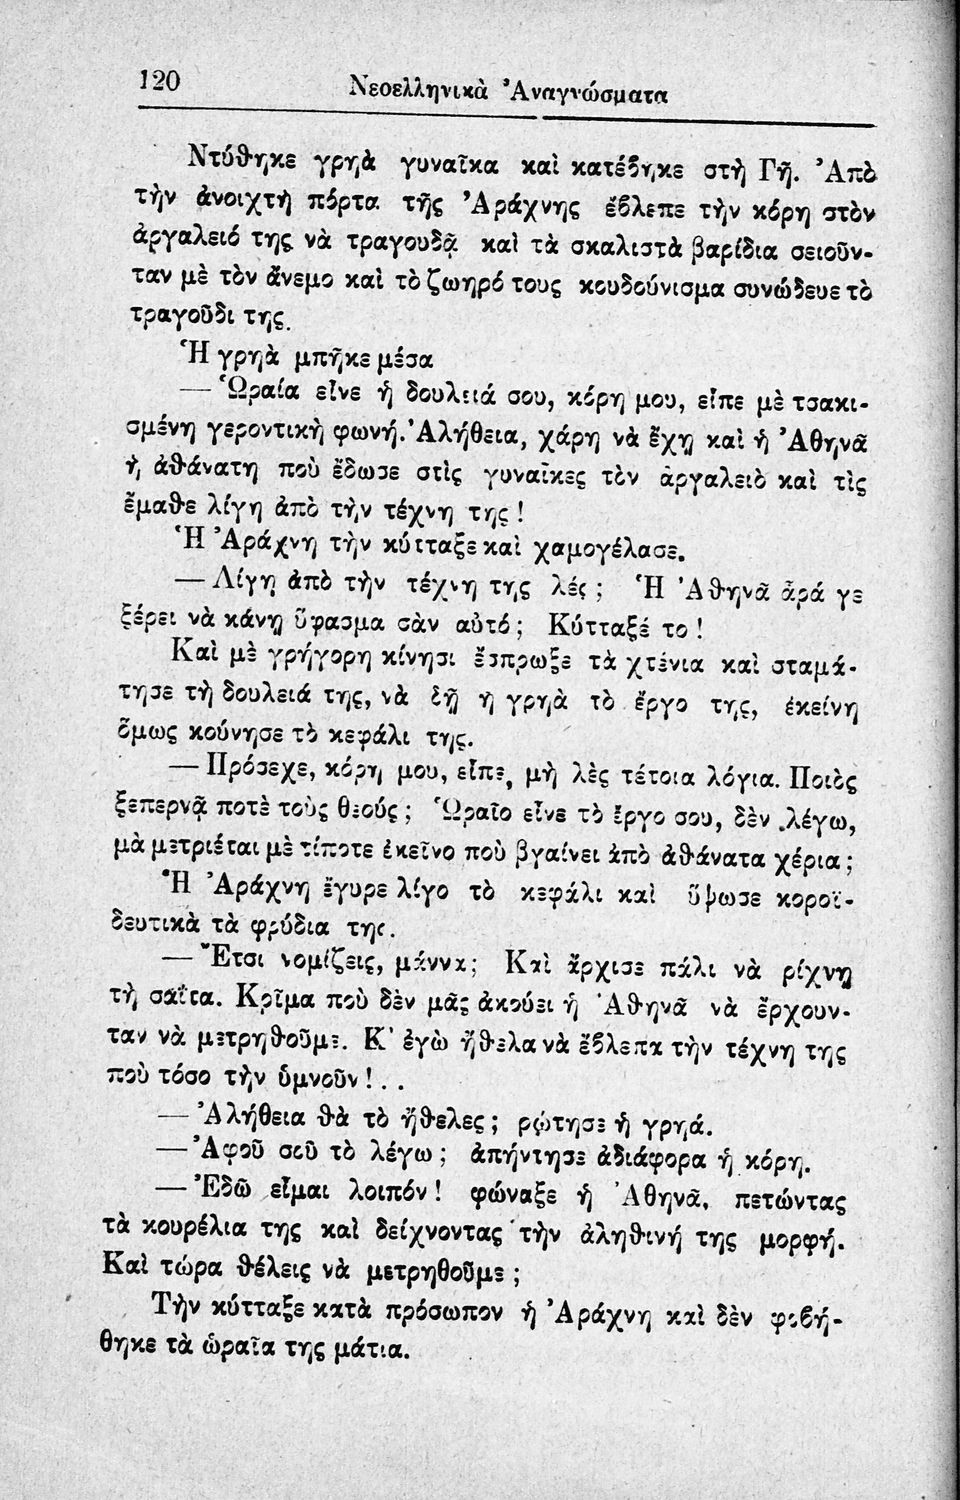 120
Νεοελληνικὰ Ἀναγνώσματα
Ντύθηκε γρηὰ γυναῖκα καὶ κατέβηκε στὴ Γῆ. Ἀπὸ
τὴν ἀνοιχτὴ πόρτα τῆς Ἀράχνης ἔβλεπε τὴν κόρη στὸν
ἀργαλειό της νὰ τραγουδᾷ καὶ τὰ σκαλιστὰ βαρίδια σειοῦν-
ταν μὲ τὸν ἄνεμο καὶ τὸ ζωηρό τους κουδούνισμα συνώδευε τὸ
τραγοῦδι της.
Ἡ γρηὰ μπῆκε μέσα
— Ὡραία εἶνε ἡ δουλειά σου, κόρη μου, εἶπε μὲ τσακι-
σμένη γεροντικὴ φωνή. Ἀλήθεια, χάρη νὰ ἔχῃ καὶ ἡ Ἀθηνᾶ
ἡ ἀθάνατη ποὺ ἔδωσε στὶς γυναῖκες τὸν ἀργαλειὸ καὶ τὶς
ἔμαθε λίγη ἀπὸ τὴν τέχνη της !
Ἡ Ἀράχνη τὴν κύτταξε καὶ χαμογέλασε.
— Λίγη ἀπὸ τὴν τέχνη της λές ; Ἡ Ἀθηνᾶ ἆρά γε
ξέρει νὰ κάνῃ ὕφασμα σὰν αὐτό ; Κύτταξέ το !
Καὶ μὲ γρήγορη κίνησι ἔσπρωξε τὰ χτένια καὶ σταμά-
τησε τὴ δουλειά της, νὰ δῇ ἡ γρηὰ τὸ ἔργο της, ἐκείνη
ὅμως κούνησε τὸ κεφάλι της.
— Πρόσεχε, κόρη μου, εἶπε, μὴ λὲς τέτοια λόγια. Ποιὸς
ξεπερνᾷ ποτὲ τοὺς θεούς ; Ὡραῖο εἶνε τὸ ἔργο σου, δὲν λέγω,
μὰ μετριέται μὲ τίποτε ἐκεῖνο ποὺ βγαίνει ἀπὸ ἀθάνατα χέρια ;
Ἡ Ἀράχνη ἔγυρε λίγο τὸ κεφάλι καὶ ὕψωσε κοροϊ-
δευτικὰ τὰ φρύδια της.
— Ἔτσι νομίζεις, μάννα ; Καὶ ἄρχισε πάλι νὰ ρίχνῃ
τὴ σαΐτα. Κρῖμα ποὺ δὲν μᾶς ἀκούει ἡ Ἀθηνᾶ νὰ ἔρχουν-
ταν νὰ μετρηθοῦμε. Κ' ἐγὼ ἤθελα νὰ ἔβλεπα τὴν τέχνη της
ποὺ τόσο τὴν ὑμνοῦν ! . .
— Ἀλήθεια θὰ τὸ ἤθελες ; ρώτησε ἡ γρηά.
— Ἀφοῦ σοῦ τὸ λέγω ; ἀπήντησε ἀδιάφορα ἡ κόρη.
— Ἐδῶ εἶμαι λοιπόν ! φώναξε ἡ Ἀθηνᾶ, πετώντας
τὰ κουρέλια της καὶ δείχνοντας τὴν ἀληθινή της μορφή.
Καὶ τώρα θέλεις νὰ μετρηθοῦμε ;
Τὴν κύτταξε κατὰ πρόσωπον ἡ Ἀράχνη καὶ δὲν φοβή-
θηκε τὰ ὡραῖα της μάτια.